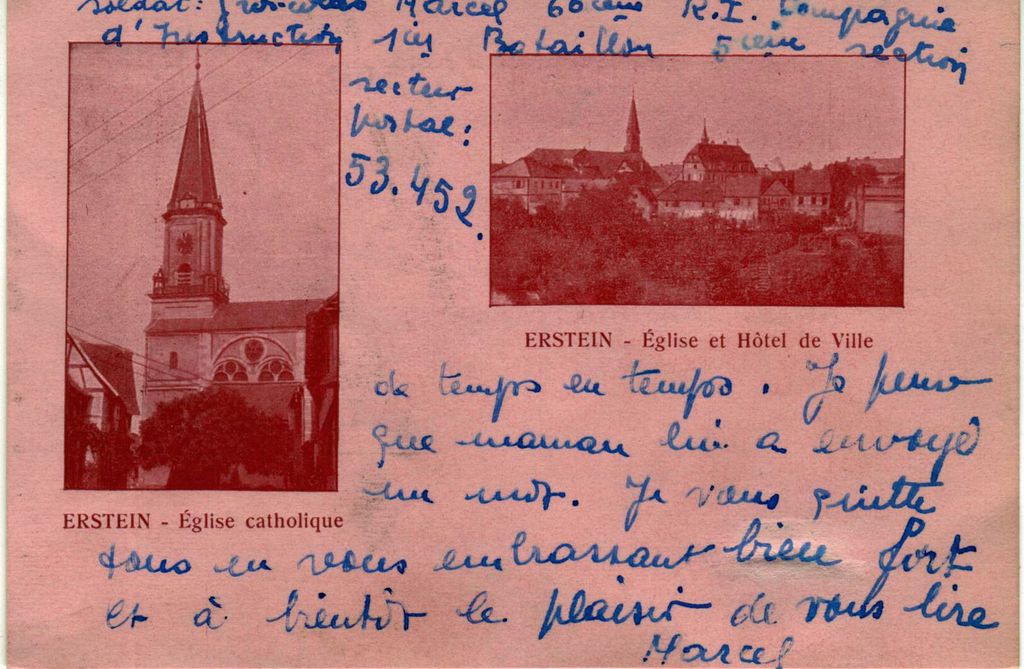 soldat: Marcel 60ème R.I. Compagnie
d'Instruction 1er Bataillon 5ème section
secteur
postal:
53.452.
ERSTEIN - Église et Hôtel de Ville
de temps en temps. Je pense
que maman lui a envoyé
un mot. Je vous quitte
ERSTEIN - Église catholique
tous en vous embrassant bien fort
et à bientôt le plaisir de vous lire
Marcel